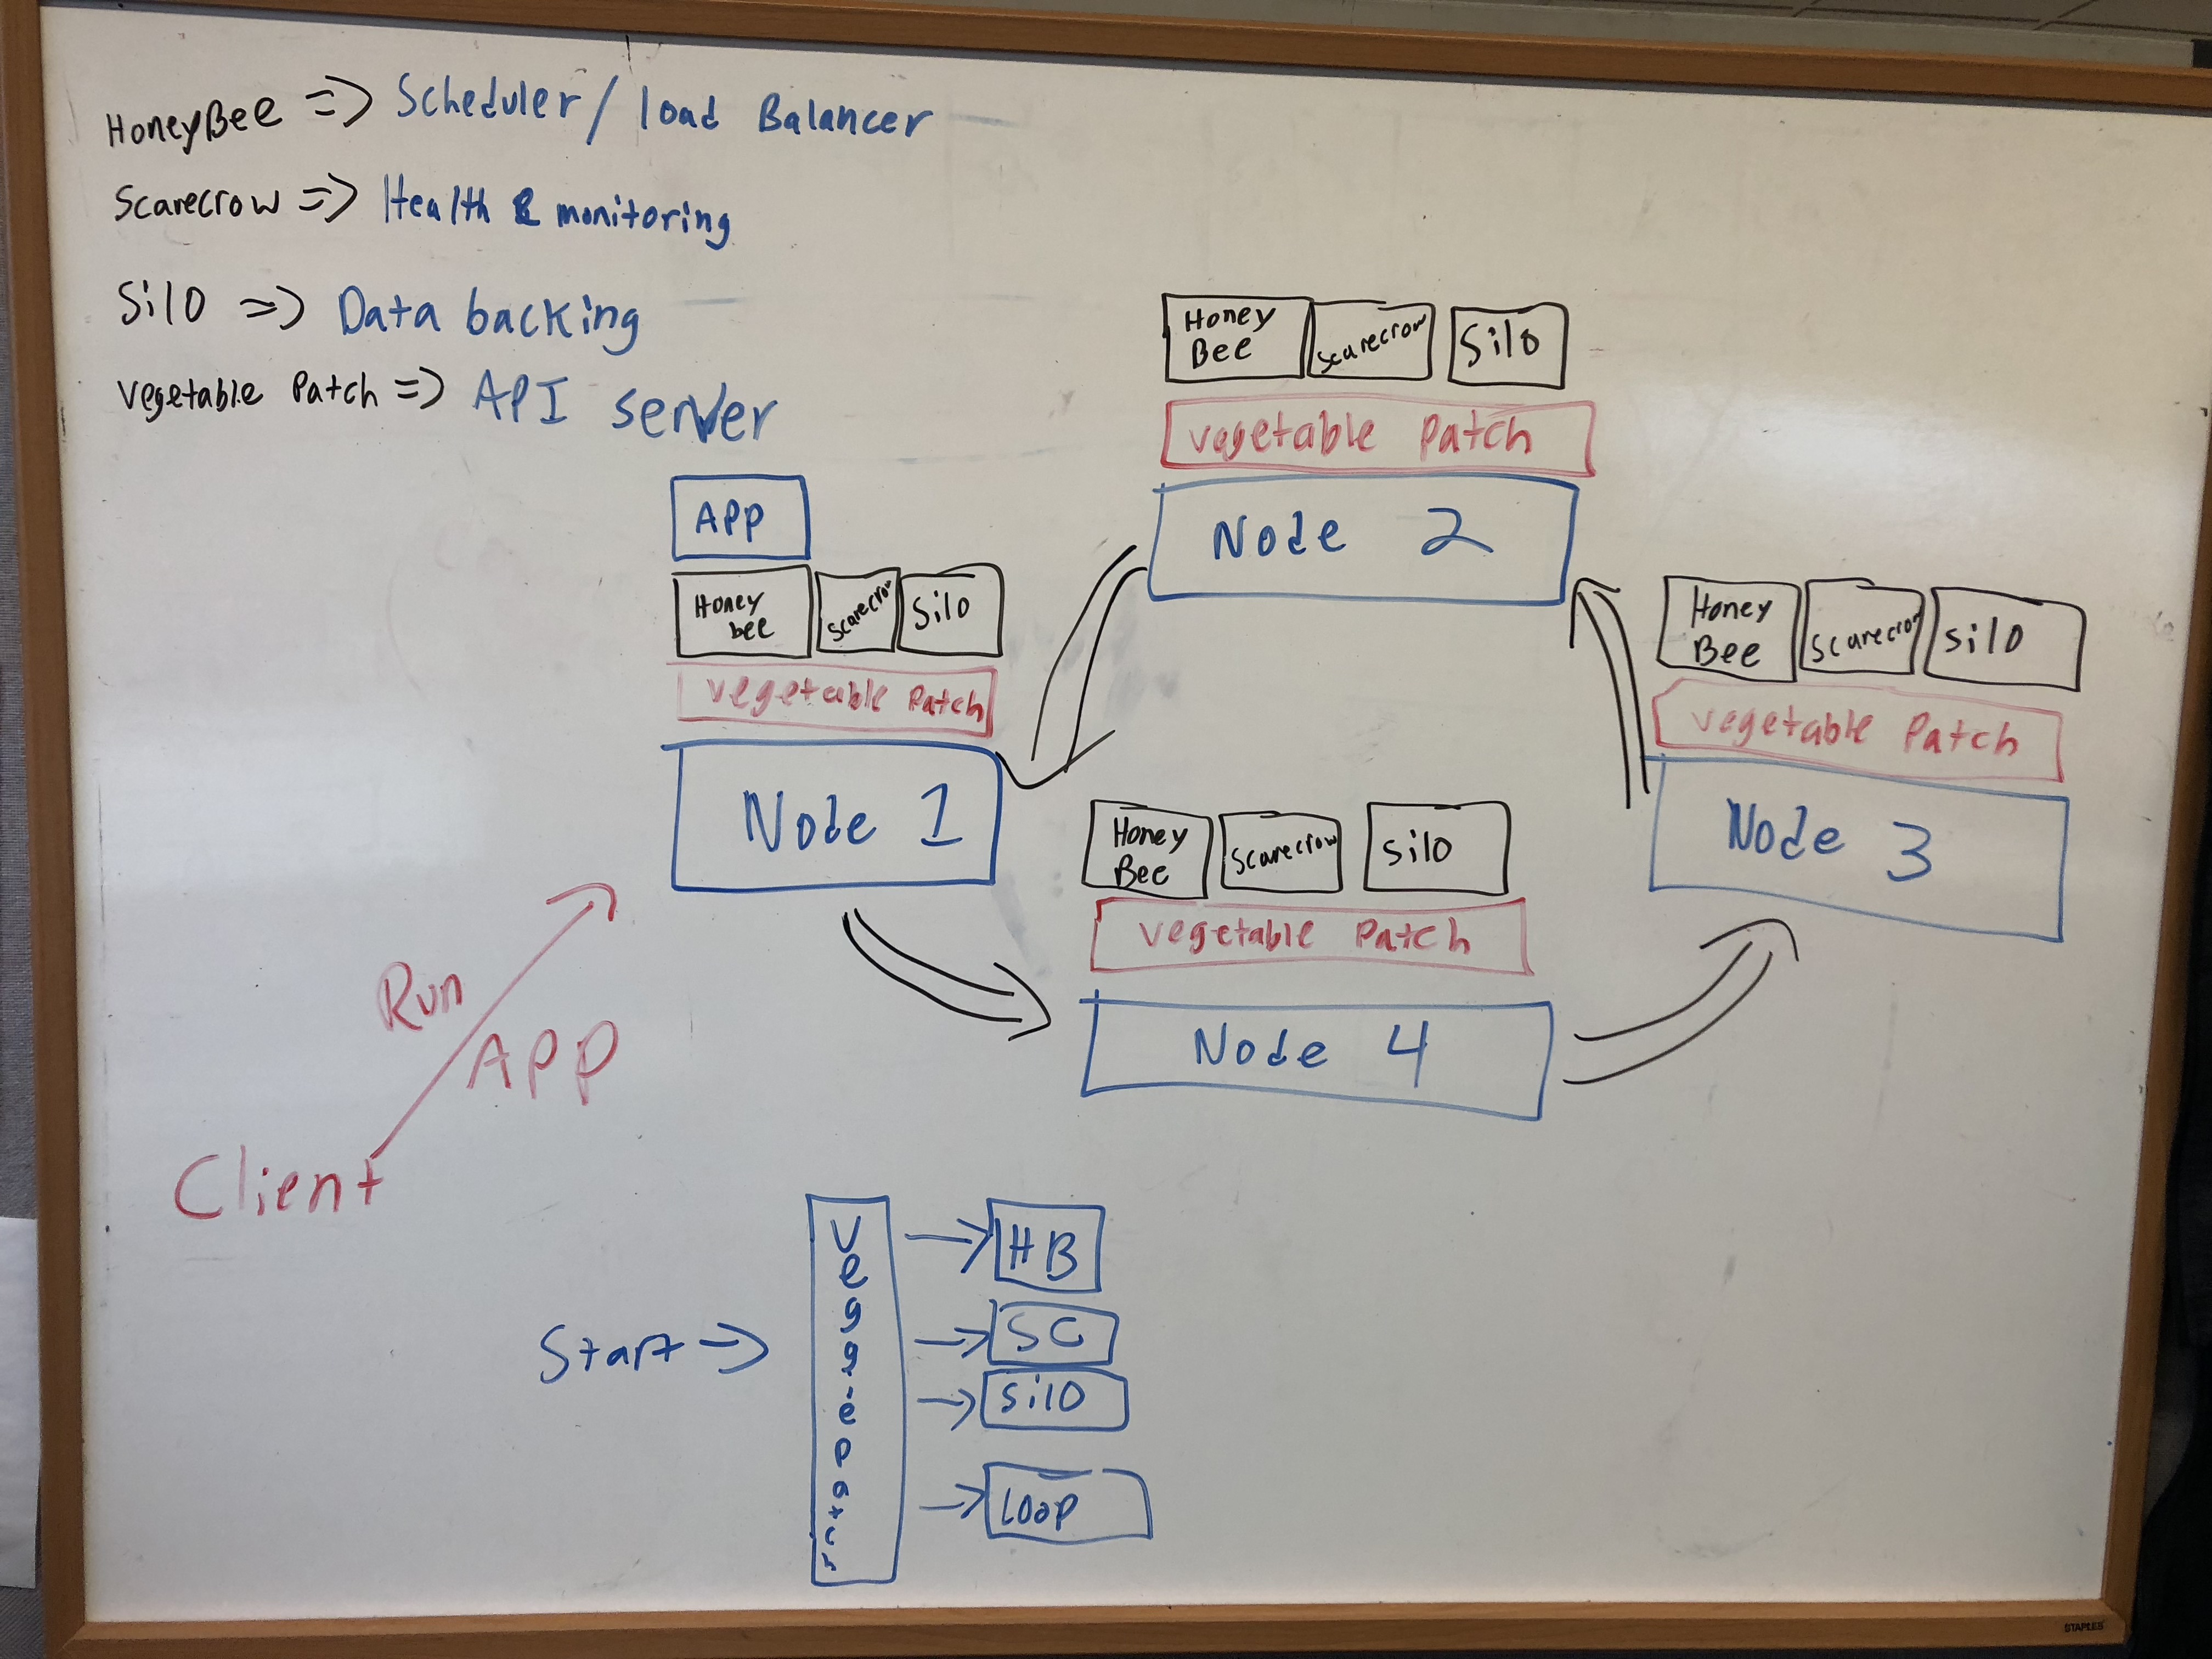 HoneyBee => Scheduler / load Balancer
Scarecrow => Health & monitoring
Silo => Data backing
Vegetable Patch => API server
Honey Bee
Scarecrow
Silo
vegetable Patch
Node 2
APP
Honey bee
Scarecrow
Silo
vegetable Patch
Node 1
Honey Bee
Scarecrow
Silo
vegetable Patch
Node 3
Honey Bee
Scarecrow
Silo
vegetable Patch
Node 4
Run APP
Client
Start =>
Veggiepatch
HB
SC
Silo
Loop
STAPLES